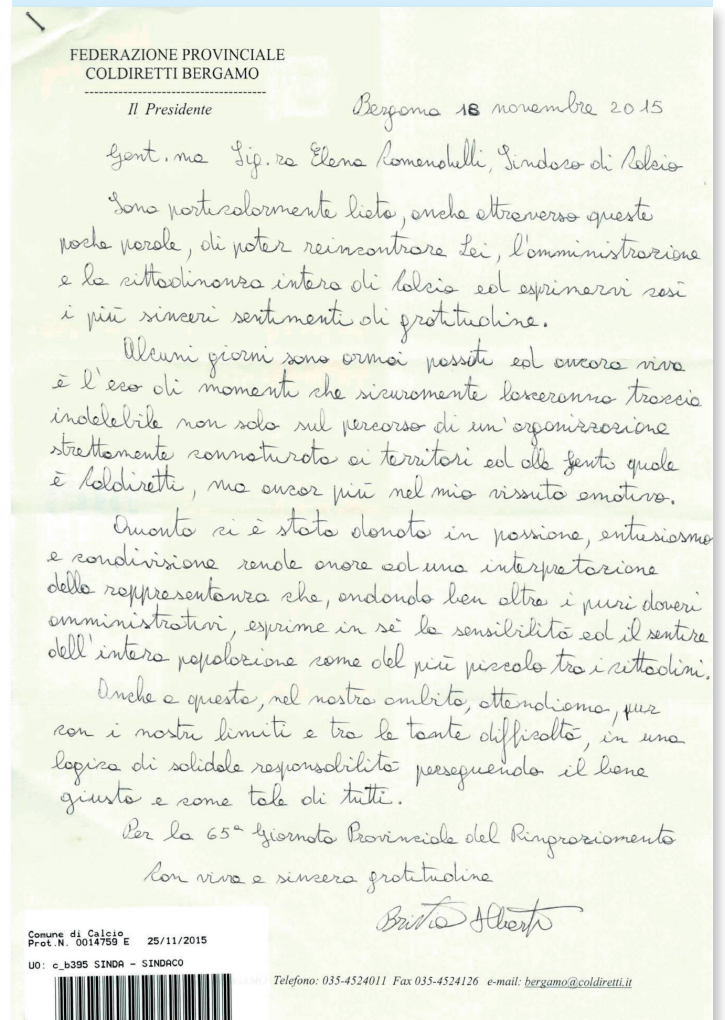 FEDERAZIONE PROVINCIALE
COLDIRETTI BERGAMO
--------------------------------------
Il Presidente
Bergamo 18 novembre 2015
Gent.ma Sig.ra Elena Comendulli, Sindaco di Calcio
Sono particolarmente lieto, anche attraverso queste
poche parole, di poter reincontrare Lei, l'amministrazione
e la cittadinanza intera di Calcio ed esprimervi così
i più sinceri sentimenti di gratitudine.
Alcuni giorni sono ormai passati ed ancora viva
è l'eco di momenti che sicuramente lasceranno traccia
indelebile non solo sul percorso di un'organizzazione
strettamente connaturata ai territori ed alla gente quale
è Coldiretti, ma ancor più nel mio vissuto emotivo.
Quanto ci è stato donato in passione, entusiasmo
e condivisione rende onore ad una interpretazione
della rappresentanza che, andando ben oltre i puri doveri
amministrativi, esprime in sè la sensibilità ed il sentire
dell'intera popolazione come del più piccolo tra i cittadini.
Anche a questo, nel nostro ambito, attendiamo, pur
con i nostri limiti e tra le tante difficoltà, in una
logica di solidale responsabilità perseguendo il bene
giusto e come tale di tutti.
Per la 65ª Giornata Provinciale del Ringraziamento
Con viva e sincera gratitudine
Alberto
Comune di Calcio
Prot.N. 0014759 E 25/11/2015
UO: c_b395 SINDA - SINDACO
Telefono: 035-4524011 Fax 035-4524126 e-mail: bergamo@coldiretti.it